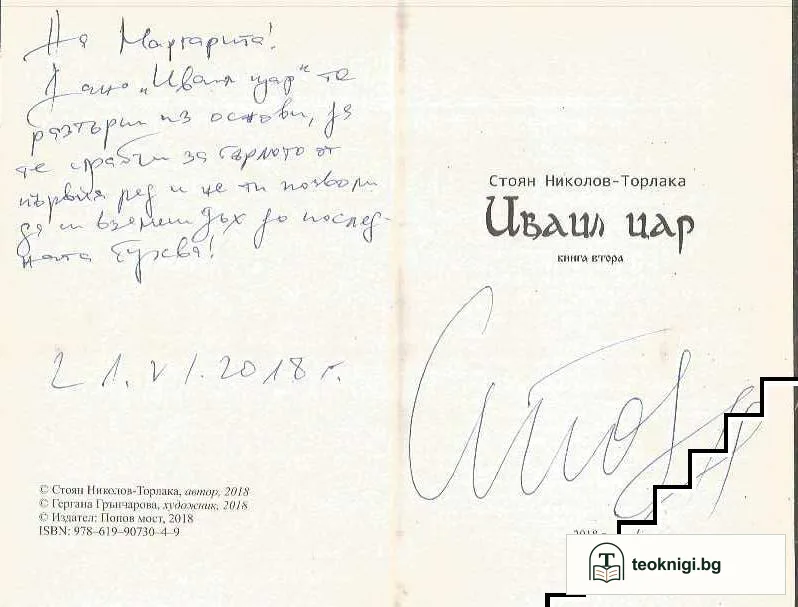 На Маргарита!
Дано „Иваил цар“ те
разтърси из основи, да
те сграбчи за гърлото от
първия ред и не ти позволи
да си вземеш дъх до послед-
ната буква!
21. VI. 2018 г.
© Стоян Николов-Торлака, автор, 2018
© Гергана Грънчарова, художник, 2018
© Издател: Попов мост, 2018
ISBN: 978-619-90730-4-9
Стоян Николов-Торлака
Иваил цар
книга втора
teoknigi.bg